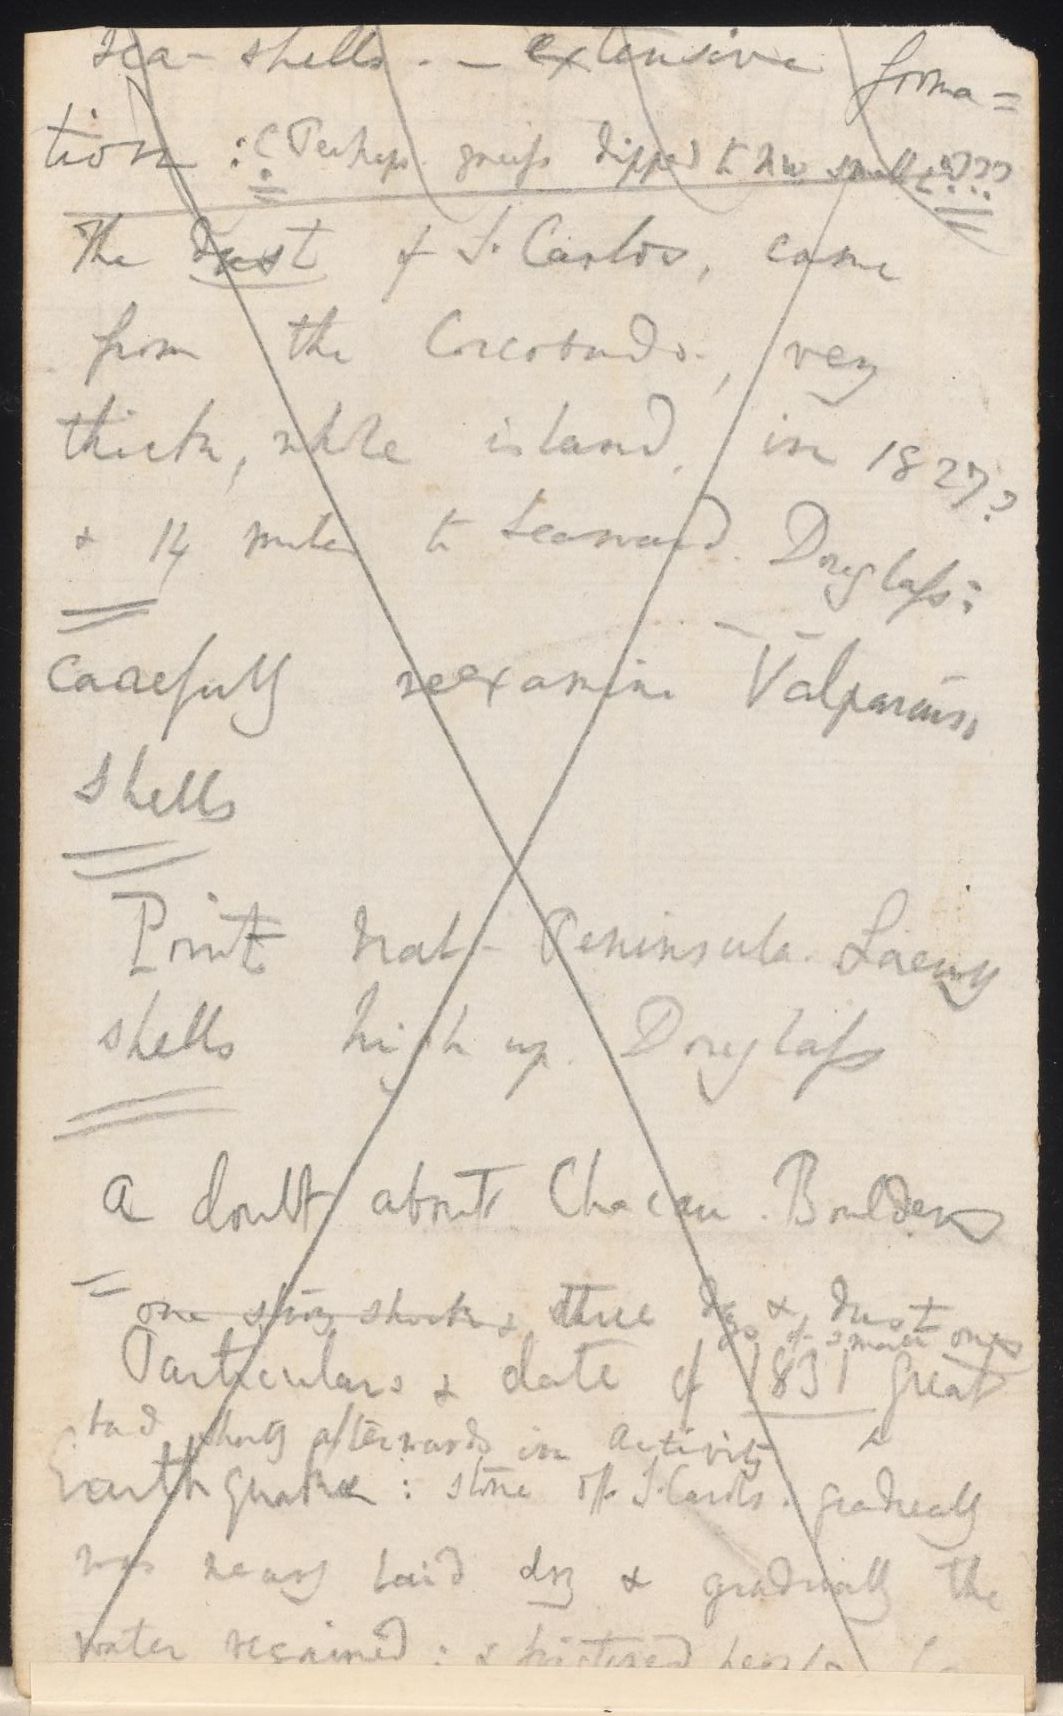 sea-shells. — extensive forma=
tion : (Perhaps gneiss dipped to NW small <)???
The dust of S. Carlos, came
from the Corcobado, very
thick, whole island, in 1827?
& 14 miles to leeward. Douglass:
carefully reexamine Valparaiso
shells
Point Peninsula. Lacuy
shells high up Douglass
a doubt about Chacau. Boulders
one strong shock & three & dust ones
of smaller
Particulars & date of 1831 great
bad shortly afterwards in activity
Earthquake : stone off S. Carlos. gradually
was nearly laid dry & gradually the
water regained : &